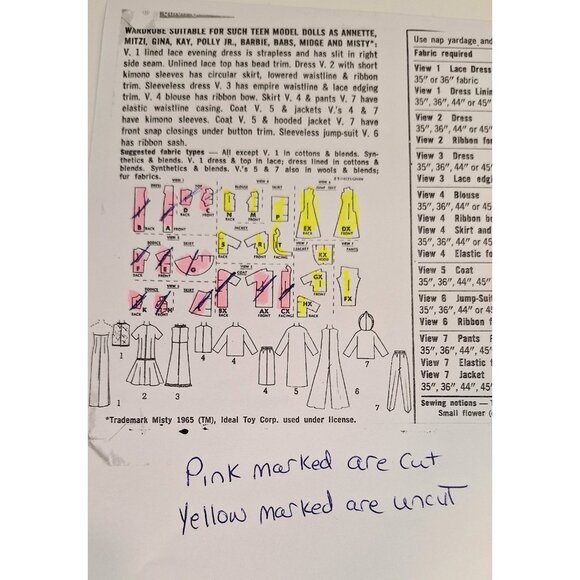 WARDROBE SUITABLE FOR SUCH TEEN MODEL DOLLS AS ANNETTE,
MITZI, GINA, KAY, POLLY JR., BARBIE, BABS, MIDGE AND MISTY*:
V. 1 lined lace evening dress is strapless and has slit in right
side seam. Unlined lace top has bead trim. Dress V. 2 with short
kimono sleeves has circular skirt, lowered waistline & ribbon
trim. Sleeveless dress V. 3 has empire waistline & lace edging
trim. V. 4 blouse has ribbon bow. Skirt V. 4 & pants V. 7 have
elastic waistline casing. Coat V. 5 & jackets V.'s 4 & 7
have kimono sleeves. Coat V. 5 & hooded jacket V. 7 have
front snap closures under button trim. Sleeveless jump-suit V. 6
has ribbon sash.
Suggested fabric types — All except V. 1 in cottons & blends. Syn-
thetics & blends. V. 1 dress & top in lace; dress lined in cottons &
blends. Synthetics & blends. V.'s 5 & 7 also in wools & blends;
fur fabrics.
DRESS TOP BLOUSE SKIRT JUMP SUIT
B BACK A FRONT D C FRONT
N BACK M FRONT P
EX BACK DX FRONT
JACKET
S BACK R FRONT T FACING
JACKET PANTS
KX HOOD
BODICE SKIRT
F E G
COAT
BX BACK AX FRONT CX FACING
GX FRONT
HX BACK
FX
BODICE SKIRT
K
1 2 3 4 4 4 5 6 7
1 7
*Trademark Misty 1965 (TM), Ideal Toy Corp. used under license.
Use nap yardage and
Fabric required
View 1 Lace Dress
35" or 36" fabric
View 1 Dress Lini
35", 36", 44" or 45"
View 2 Dress
35", 36", 44" or 45
View 2 Ribbon f
View 3 Dress
35", 36", 44" or 45
View 3 Lace edgi
View 4 Blouse
35", 36", 44" or 45
View 4 Ribbon b
View 4 Skirt and
35", 36", 44" or 45
View 4 Elastic fo
View 5 Coat
35", 36", 44", 45"
View 6 Jump-Suit
35", 36", 44", 45"
View 6 Ribbon f
View 7 Pants
35", 36", 44" 45"
View 7 Elastic f
View 7 Jacket
35", 36", 44", 45"
Sewing notions — T
Small flower (
Pink marked are cut
Yellow marked are uncut